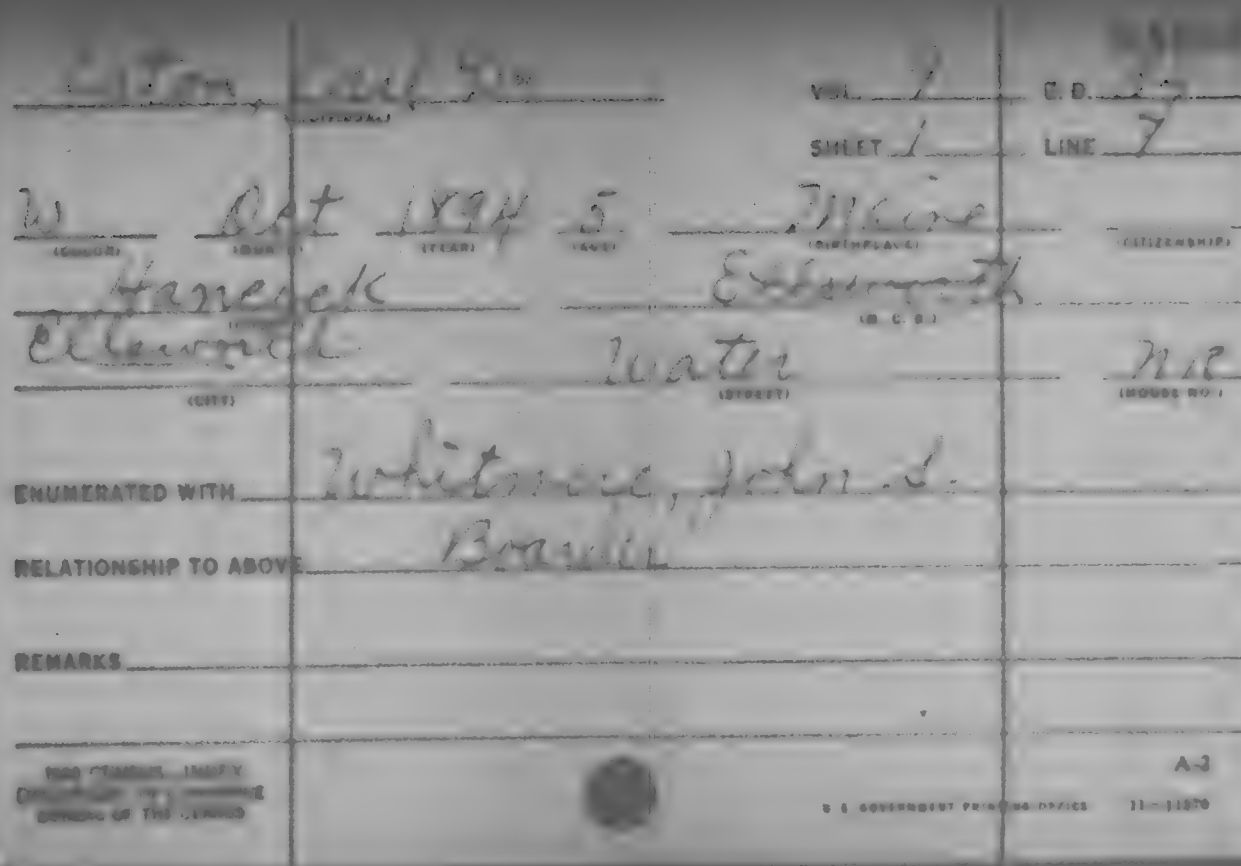 VOL. E. D.
(INDIVIDUAL)
SHEET 1 LINE 7
W Oct 1894 5 Maine
(COLOR) (MONTH) (YEAR) (AGE) (BIRTHPLACE) (CITIZENSHIP)
Hancock Ellsworth
(M. C. D.)
Ellsworth Water NR
(CITY) (STREET) (HOUSE NO.)
ENUMERATED WITH Whitmore, John S.
RELATIONSHIP TO ABOVE Boarder
REMARKS
1900 CENSUS INDEX
DEPARTMENT OF COMMERCE
BUREAU OF THE CENSUS
A-2
U. S. GOVERNMENT PRINTING OFFICE 11-11870